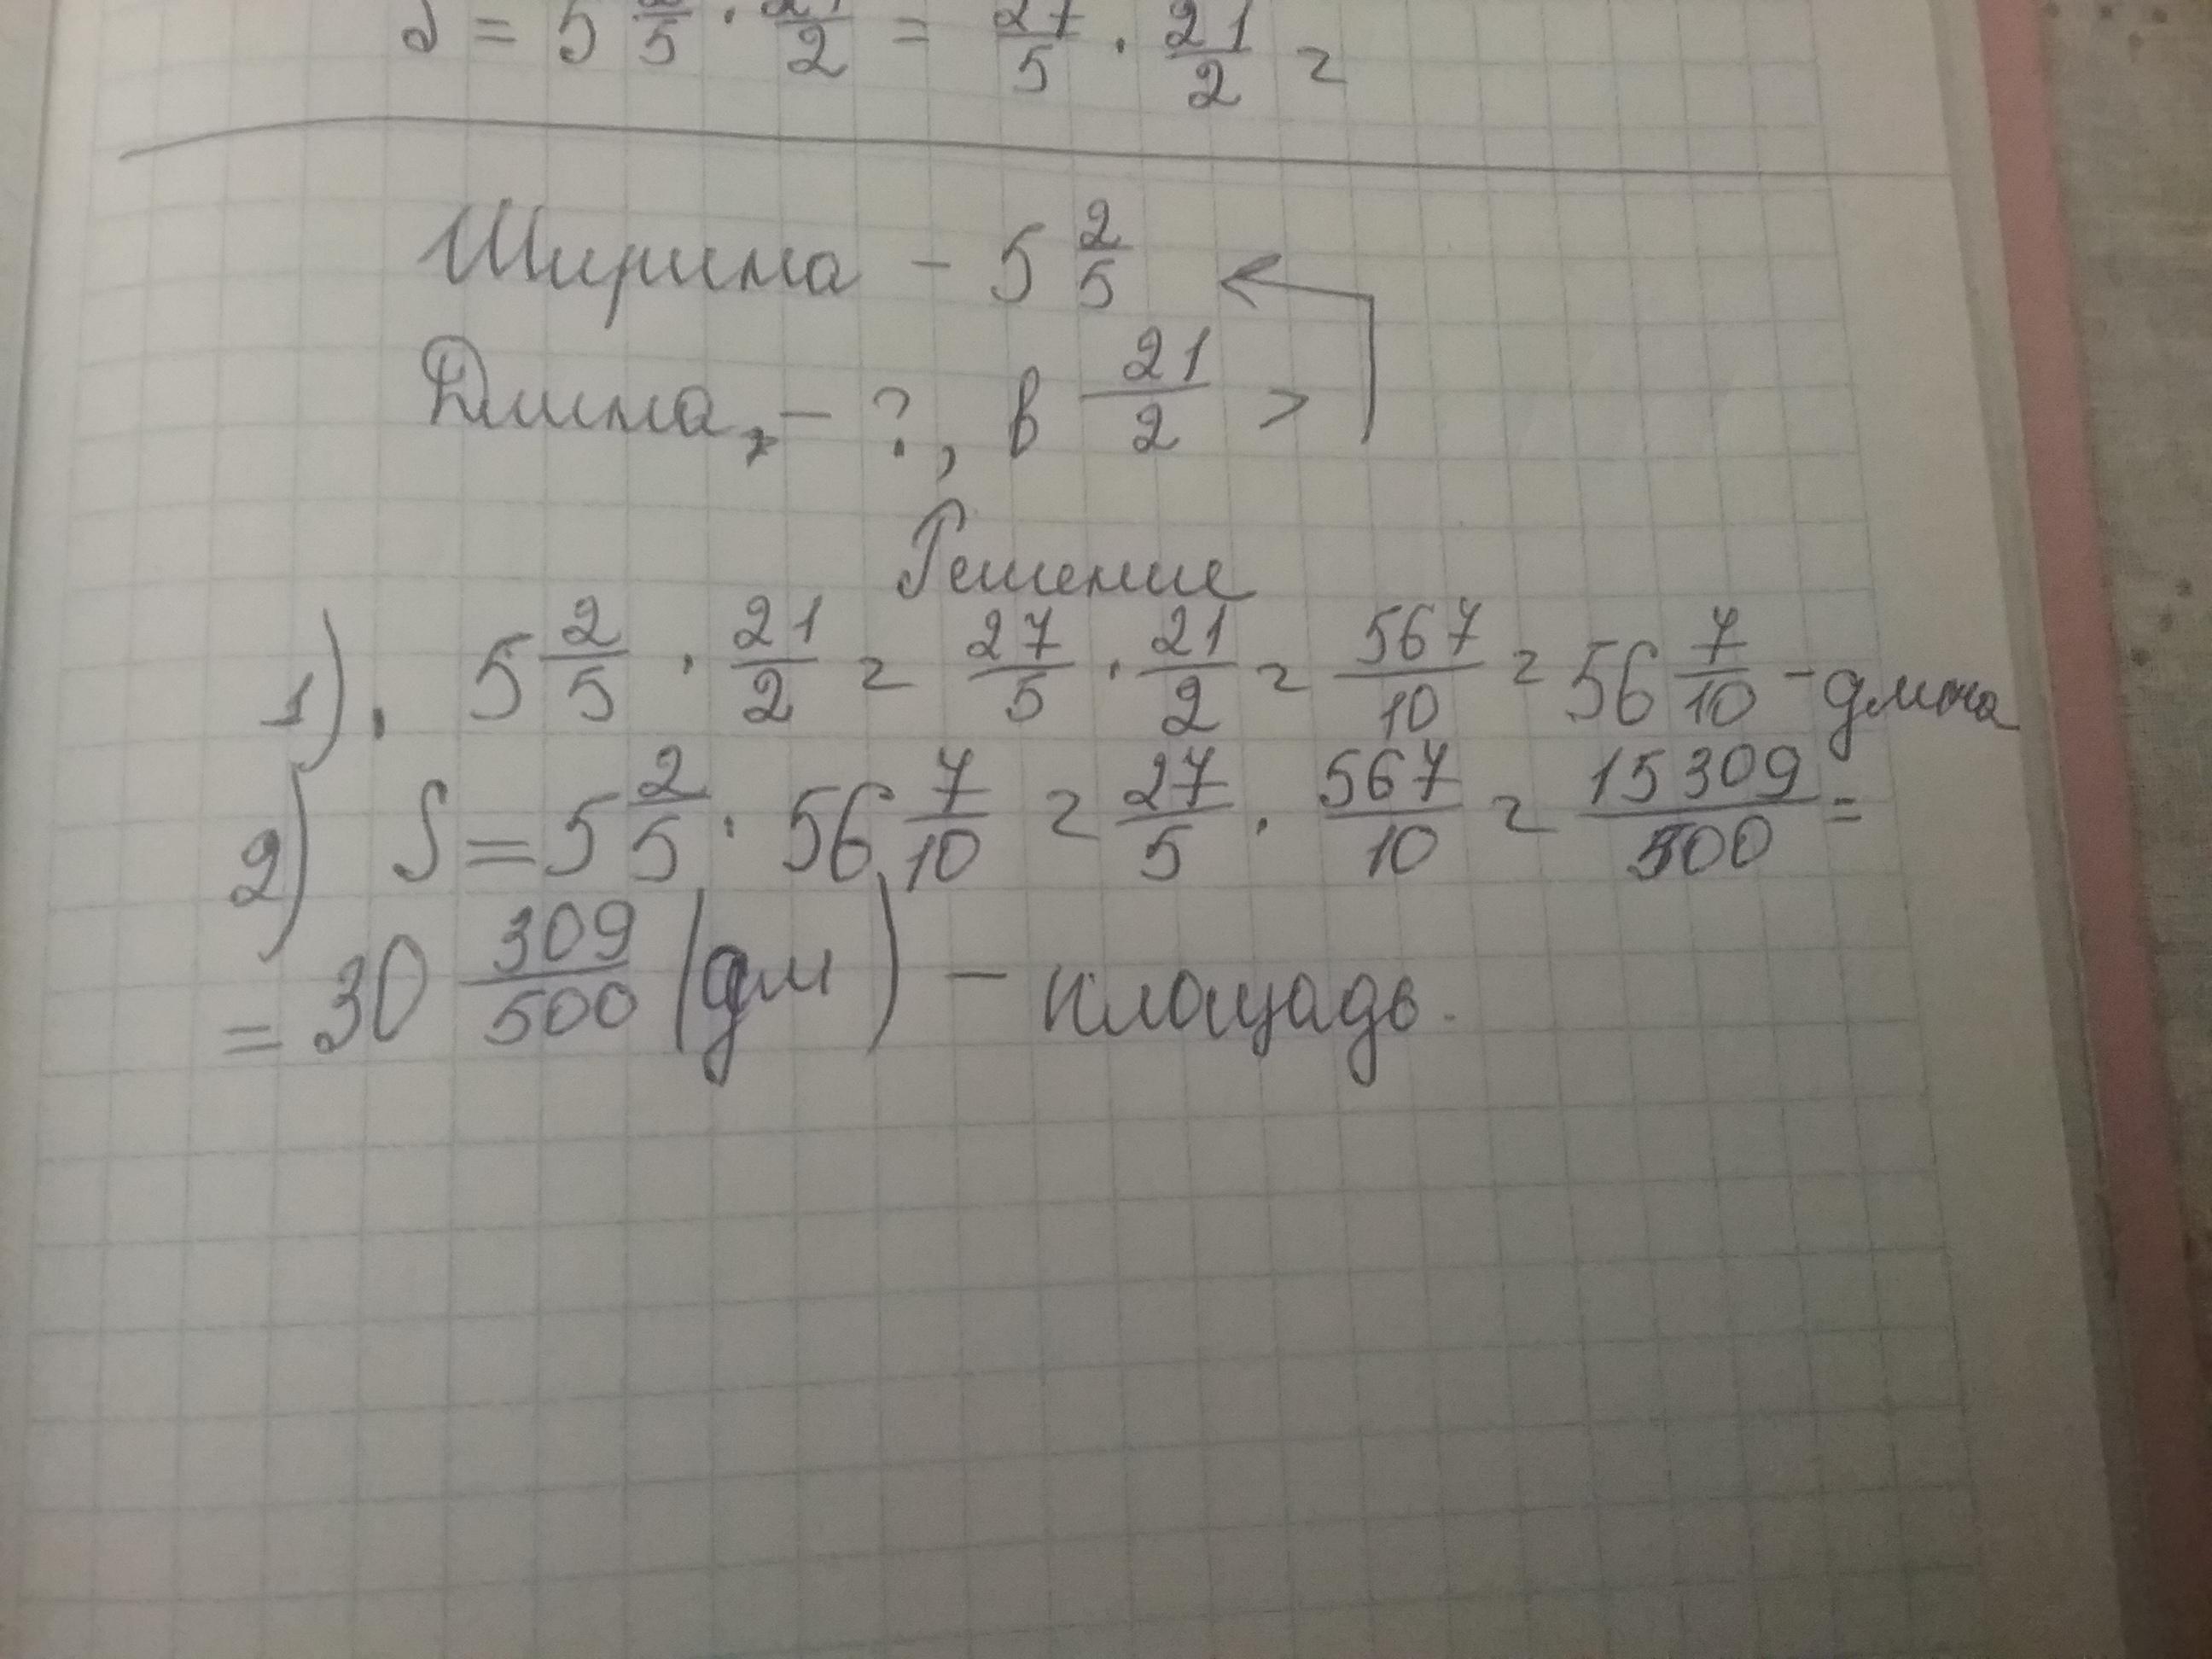 S = 5 2/5 · 21/2 = 27/5 · 21/2 =
Ширина - 5 2/5
Длина - ?, в 21/2 >
Решение
1). 5 2/5 · 21/2 = 27/5 · 21/2 = 567/10 = 56 7/10 - длина
2) S = 5 2/5 · 56 7/10 = 27/5 · 567/10 = 15309/500 =
= 30 309/500 (дм) - площадь.